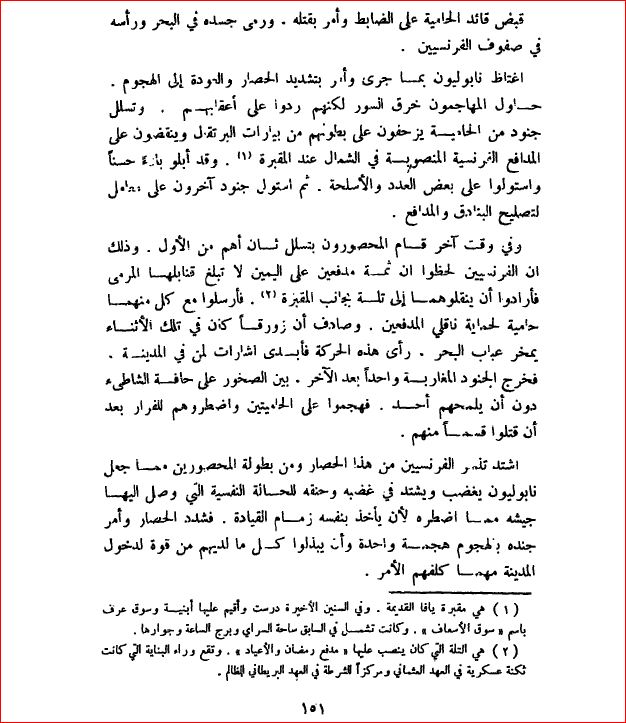 قبض قائد الحامية على الضابط وأمر بقتله . ورمى جسده في البحر ورأسه
في صفوف الفرنسيين .
اغتاظ نابوليون بمـا جرى وأمر بتشديد الحصار والعودة إلى الهجوم .
حـاول المهاجمون خرق السور لكنهم ردوا على أعقابهـم . وتسلل
جنود من الحاميـة يزحفون على بطونهم من بيارات البرتقال وينقضون على
المدافع الفرنسية المنصوبـة في الشمال عند المقبرة (١) . وقد أبلو بلاءً حسناً
واستولوا على بعض العدد والأسلحة . ثم استول جنود آخرون على معامل
لتصليح البنادق والمدافع .
وفي وقت آخر قـام المحصورون بتسلل ثـان أهم من الأول . وذلك
ان الفرنسيين لحظوا ان ثمـة مدفعين على اليمين لا تبلغ قنابلهـا المرمى
فأرادوا أن ينقلوهمـا إلى تلـة بجانب المقبرة (٢) . فأرسلوا مع كل منهمـا
حامية لحماية ناقلي المدفعين . وصادف أن زورقـاً كان في تلك الأثنـاء
يمخر عباب البحر . رأى هذه الحركة فأبـدى اشارات لمن في المدينـة .
فخرج الجنود المغاربـة واحداً بعد الآخر . بين الصخور على حافـة الشاطىء
دون أن يلمحهم أحـد . فهجموا على الحاميتين واضطروهم للفرار بعد
أن قتلوا قسمـاً منهم .
اشتد تذمر الفرنسيين من هذا الحصار ومن بطولة المحصورين ممـا جعل
نابوليون يغضب ويشتد في غضبه وحنقه للحـالة النفسية التي وصل اليهـا
جيشه ممـا اضطره لأن يأخذ بنفسه زمـام القيادة . فشدد الحصار وأمر
جنده بالهجوم هجمـة واحدة وأن يبذلوا كـل ما لديهم من قوة لدخول
المدينة مهمـا كلفهم الأمر .
(١) هي مقبرة يافا القديمة . وفي السنين الأخيرة درست وأقيم عليها أبنيـة وسوق عرف
باسم « سوق الأسعاف » . وكانت تشمـل في السابق ساحة السراي وبرج الساعة وجوارها .
(٢) هي التلة التي كان ينصب عليها « مدفع رمضان والأعياد » . وتقع وراء البناية التي كانت
ثكنة عسكرية في العهد العثماني ومركزاً للشرطة في العهد البريطاني الظالم .
١٥١